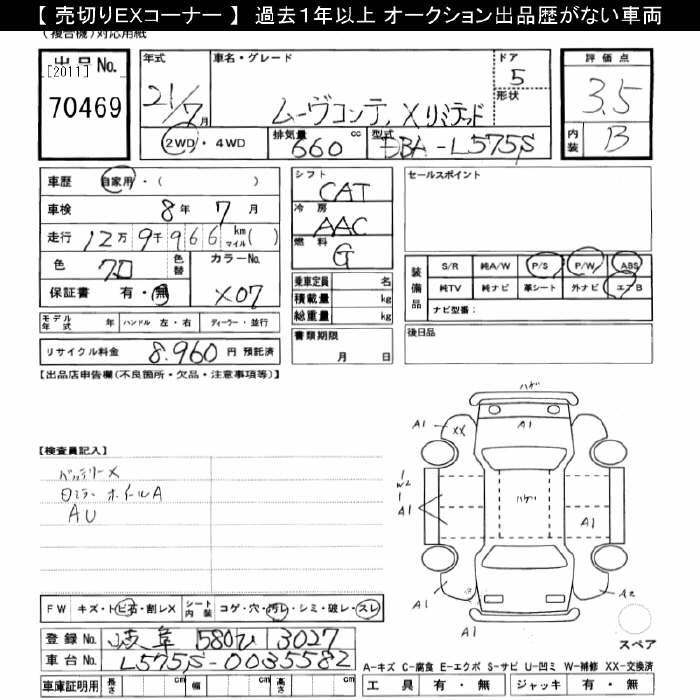 【 売切りEXコーナー 】 過去１年以上 オークション出品歴がない車両
(複合機)対応用紙
出品No.
[2011]
70469
年式
21/7月
車名・グレード
ムーヴコンテ, Xリミテッド
ドア
5
形状
2WD・4WD
排気量
660 cc
型式
DBA-L575S
評価点
3.5
内装
B
車歴 自家用・( )
車検 8年 7月
走行 12万9千966 km マイル( )
色
クロ
色替
カラーNo.
X07
保証書 有・無
シフト
CAT
冷房
AAC
燃料
G
乗車定員 名
積載量 kg
総重量 kg
書類期限
月 日
セールスポイント
装備品
S/R 純A/W P/S P/W ABS
純TV 純ナビ 革シート 外ナビ エアB
ナビ型番：
後日品
モデル年式 年 ハンドル 左・右 ディーラー・並行
リサイクル料金 8,960円 預託済
【出品店申告欄(不良箇所・欠品・注意事項等)】
【検査員記入】
バッテリーX
ホイールA
AU
ハゲ
A1
XX
A1
A1
W2
A1
ハゲ
A1
A1
A2
A1
FW キズ・トビ石・割レX シート内装 コゲ・穴・汚レ・シミ・破レ・スレ
登録No. 岐阜 580ひ 3027
車台No. L575S-0035582
車庫証明用 長さ cm 幅 cm 高さ cm
スペア
A-キズ C-腐食 E-エクボ S-サビ U-凹ミ W-補修 XX-交換済
工具 有・無 ジャッキ 有・無